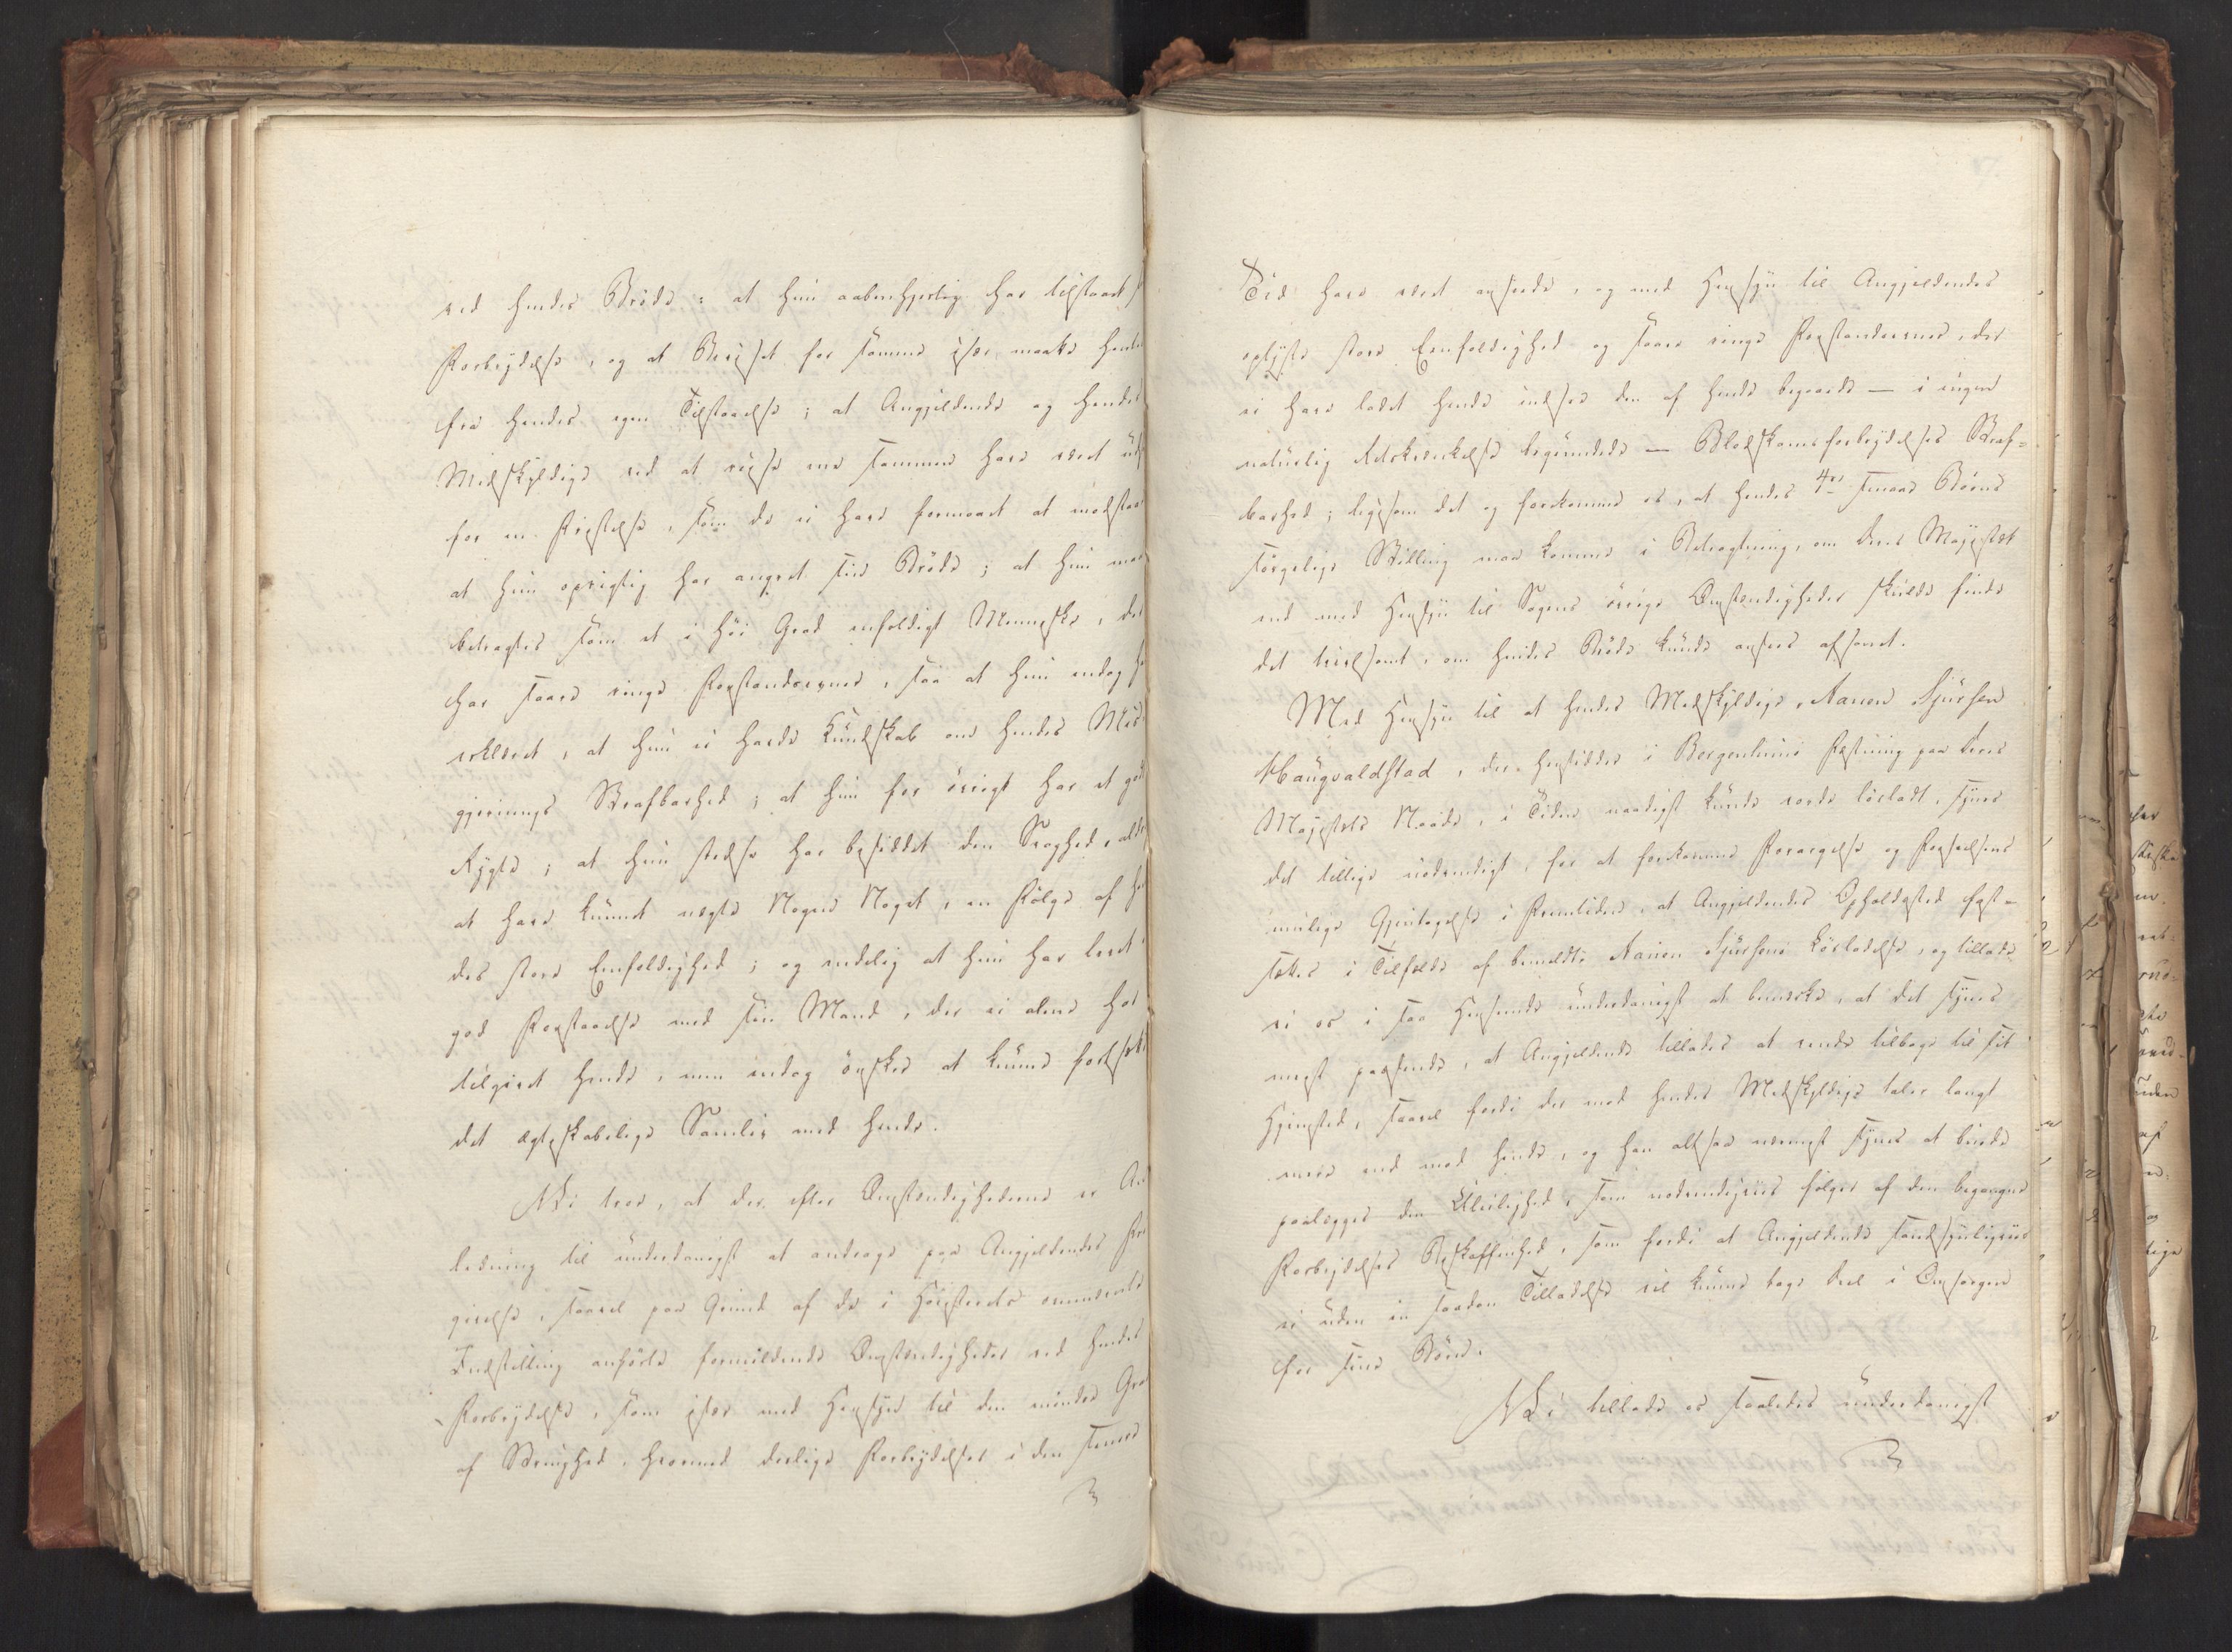 ved hendes Brøde: at hun aabenhjertig har tilstaaet
Forbrydelse, og at Beviset for samme især maatte hentes
fra hendes egen Tilstaaelse; at Angjeldende og hendes
Medskyldige ved at reise ene sammen have været
for en Fristelse, som de ei have formaaet at modstaae
at hun oprigtig har angret sin Brøde; at hun maa
betragtes som et i høi Grad enfoldigt Menneske, der
har saare ringe Forstandsevner, saa at hun endog
erklæret, at hun ei havde Kundskab om hendes Mis
gjernings Strafbarhed; at hun for øvrigt har et godt
Rygte; at hun stedse har besiddet den Svaghed, aldrig
at have kunnet negte Nogen Noget, en Følge af
des store Eenfoldighed; og endelig at hun har levet i
god Forstaaelse med sin Mand, der ei alene har
tilgivet hende, men endog ønsker at kunne fortsætte
det ægteskabelige Samliv med hende.
Vi troe, at der efter Omstændighederne er An
ledning til underdanigst at andrage paa Angjeldendes
givelse, saavel paa Grund af de i Høiesterets ommeldte
Indstilling anførte formildende Omstændigheder ved hendes
Forbrydelse, som især med Hensyn til den mindre Grad
af Strenghed, hvormed deslige Forbrydelser i den senere
Tid have været ansete, og med Hensyn til Angjeldendes
oplyste store Eenfoldighed og saare ringe Forstandsevner, der
ei have ladet hende indsee den af hende begaaede — i ingen
naturlig Retskrænkelse begrundede — Blodskamsforbrydelses Straf-
barhed; ligesom det og forekommer os, at hendes 4re smaae Børns
sørgelige Stilling maa komme i Betragtning, om Deres Majestæt
end med Hensyn til Sagens øvrige Omstændigheder skulde finde
det tvivlsomt, om hendes Brøde kunde ansees afsonet.
Med Hensyn til at hendes Medskyldige, Aanen Sjursen
Haugvaldstad, der hensidder i Bergenhuus Fæstning paa Deres
Majestæts Naade, i Tiden naadigst kunde vorde løsladt, synes
det tillige nødvendigt, for at forekomme Forargelse og Forseelsens
mulige Gjentagelse i Fremtiden, at Angjeldendes Opholdssted fast-
sættes i Tilfælde af bemeldte Aanen Sjursens Løsladelse, og tillade
vi os i saa Henseende underdanigst at bemærke, at det synes
meest passende, at Angjeldende tillades at vende tilbage til sit
Hjemsted, saavel fordi der mod hendes Medskyldige taler langt
mere end mod hende, og han altsaa nærmest synes at burde
paalægges den Uleilighed, som nødvendigviis følger af den begangne
Forbrydelses Beskaffenhed, som fordi at Angjeldende sandsynligviis
ei uden en saadan Tilladelse vil kunne tage Deel i Omsorgen
for sine Børn.
Vi tillade os saaledes underdanigst